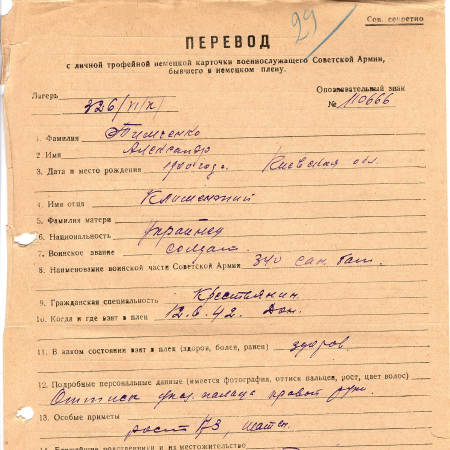 29
Сов. секретно
ПЕРЕВОД
с личной трофейной немецкой карточки военнослужащего Советской Армии,
бывшего в немецком плену.
Лагерь 326/VI/K/
Опознавательный знак
№ 110666
1. Фамилия Тимченко
2. Имя Александр
3. Дата и место рождения 1900 года. Киевская обл
4. Имя отца
5. Фамилия матери
6. Национальность украинец
7. Воинское звание солдат.
8. Наименование воинской части Советской Армии 340 сан. бат.
9. Гражданская специальность Крестьянин.
10. Когда и где взят в плен 12.6.42. Дон.
11. В каком состоянии взят в плен (здоров, болен, ранен) здоров
12. Подробные персональные данные (имеется фотография, оттиск пальцев, рост, цвет волос)
Оттиск указ. пальца правой руки.
13. Особые приметы
рост 173, шатен
14. Ближайшие родственники и их местожительство